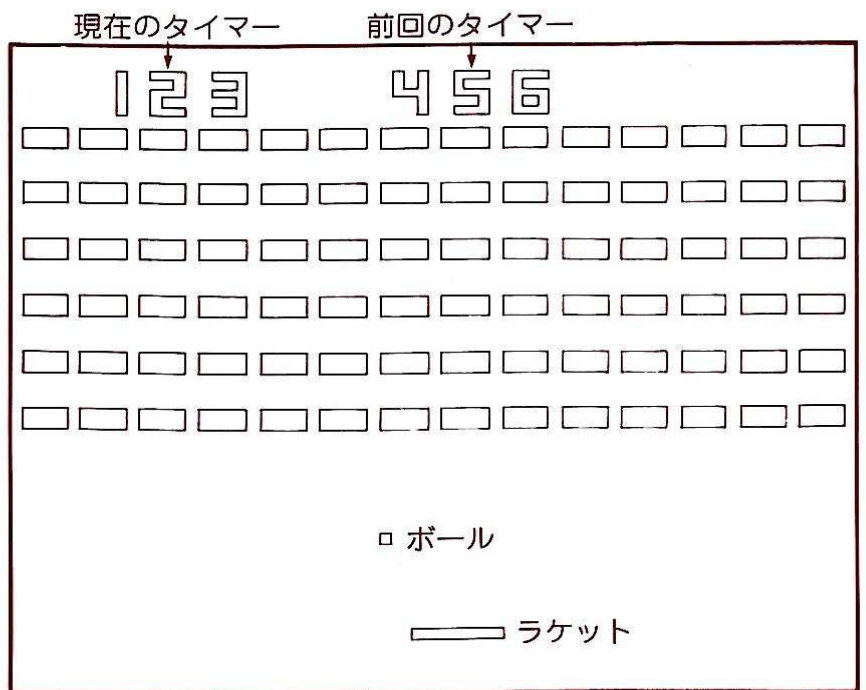 現在のタイマー 前回のタイマー
123 456
ボール
ラケット